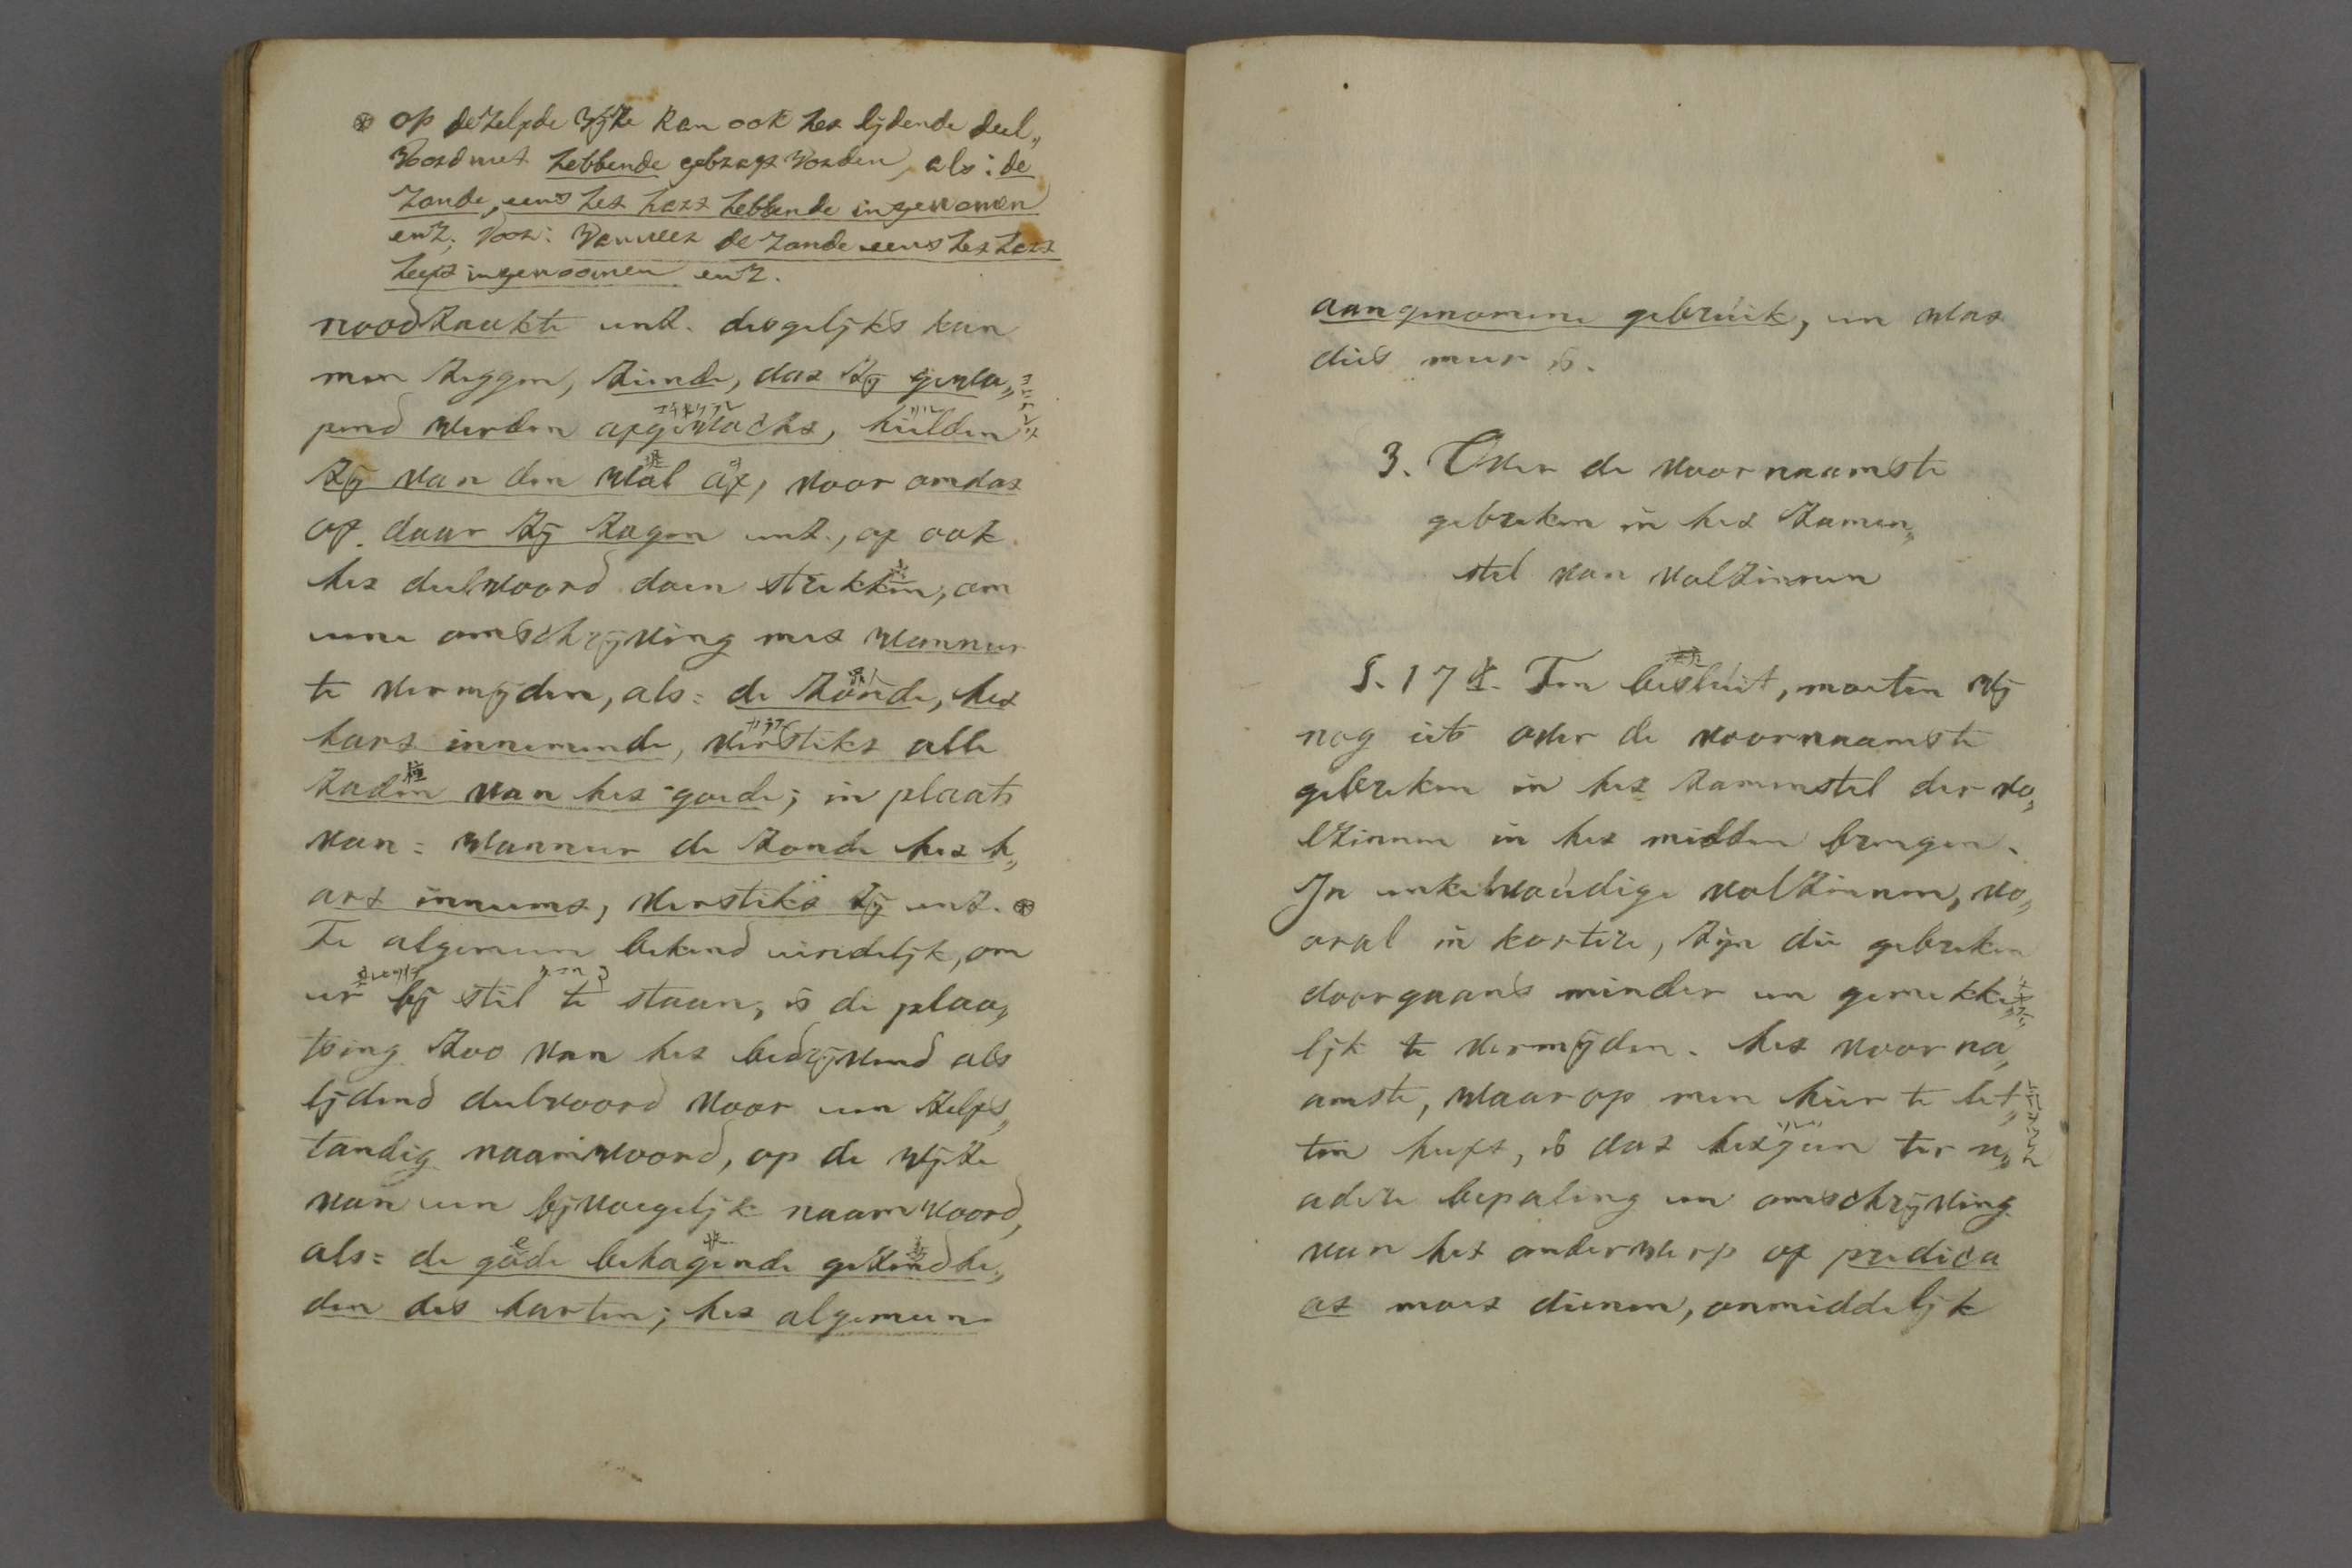 ⊛ op dezelfde wijze kan ook het lijdende deel„
woord met hebbende gebragt worden, als: de
zonde, eens het hart hebbende ingenomen
enz; voor: wanneer de zonde eens het hart
heeft ingenoomen enz.
noodzaakte enz. desgelijks kan
men zeggen, ziende, dat zij gewa„
pend werden afgewacht, hielden
zij van den wal af, voor omdat
of daar zij zagen enz., of ook
het deelwoord doen strekken, om
eene omschrijving met wanneer
te vermijden, als: de zonde, het
hart innemende, verstikt alle
zaden van het goede; in plaats
van: wanneer de zonde het h„
art inneemt, verstikt zij enz. ⊛
Te algemeen bekend eindelijk, om
er bij stil te staan, is de plaa„
tsing zoo van het bedrijvend als
lijdend deelwoord voor een zelfs„
tandig naamwoord, op de wijze
van een bijvoegelijk naamwoord,
als: de gode behagende gezindhe„
den des harten; het algemeen
aangenomene gebruik, en wat
dies meer is.
3. Over de voornaamste
gebreken in het zamen„
stel van volzinnen
§. 178. Ten besluit, moeten wij
nog iets over de voornaamste
gebreken in het zamenstel der vo„
lzinnen in het midden brengen.
In enkelvoudige volzinnen, vo„
oral in kortere, zijn die gebreken
doorgaans minder en gemakke„
lijk te vermijden. het voorna„
amste, waarop men hier te let„
ten heeft, is dat hetgeen ter n„
adere bepaling en omschrijving
van het onderwerp of predica
at moet dienen, onmiddelijk